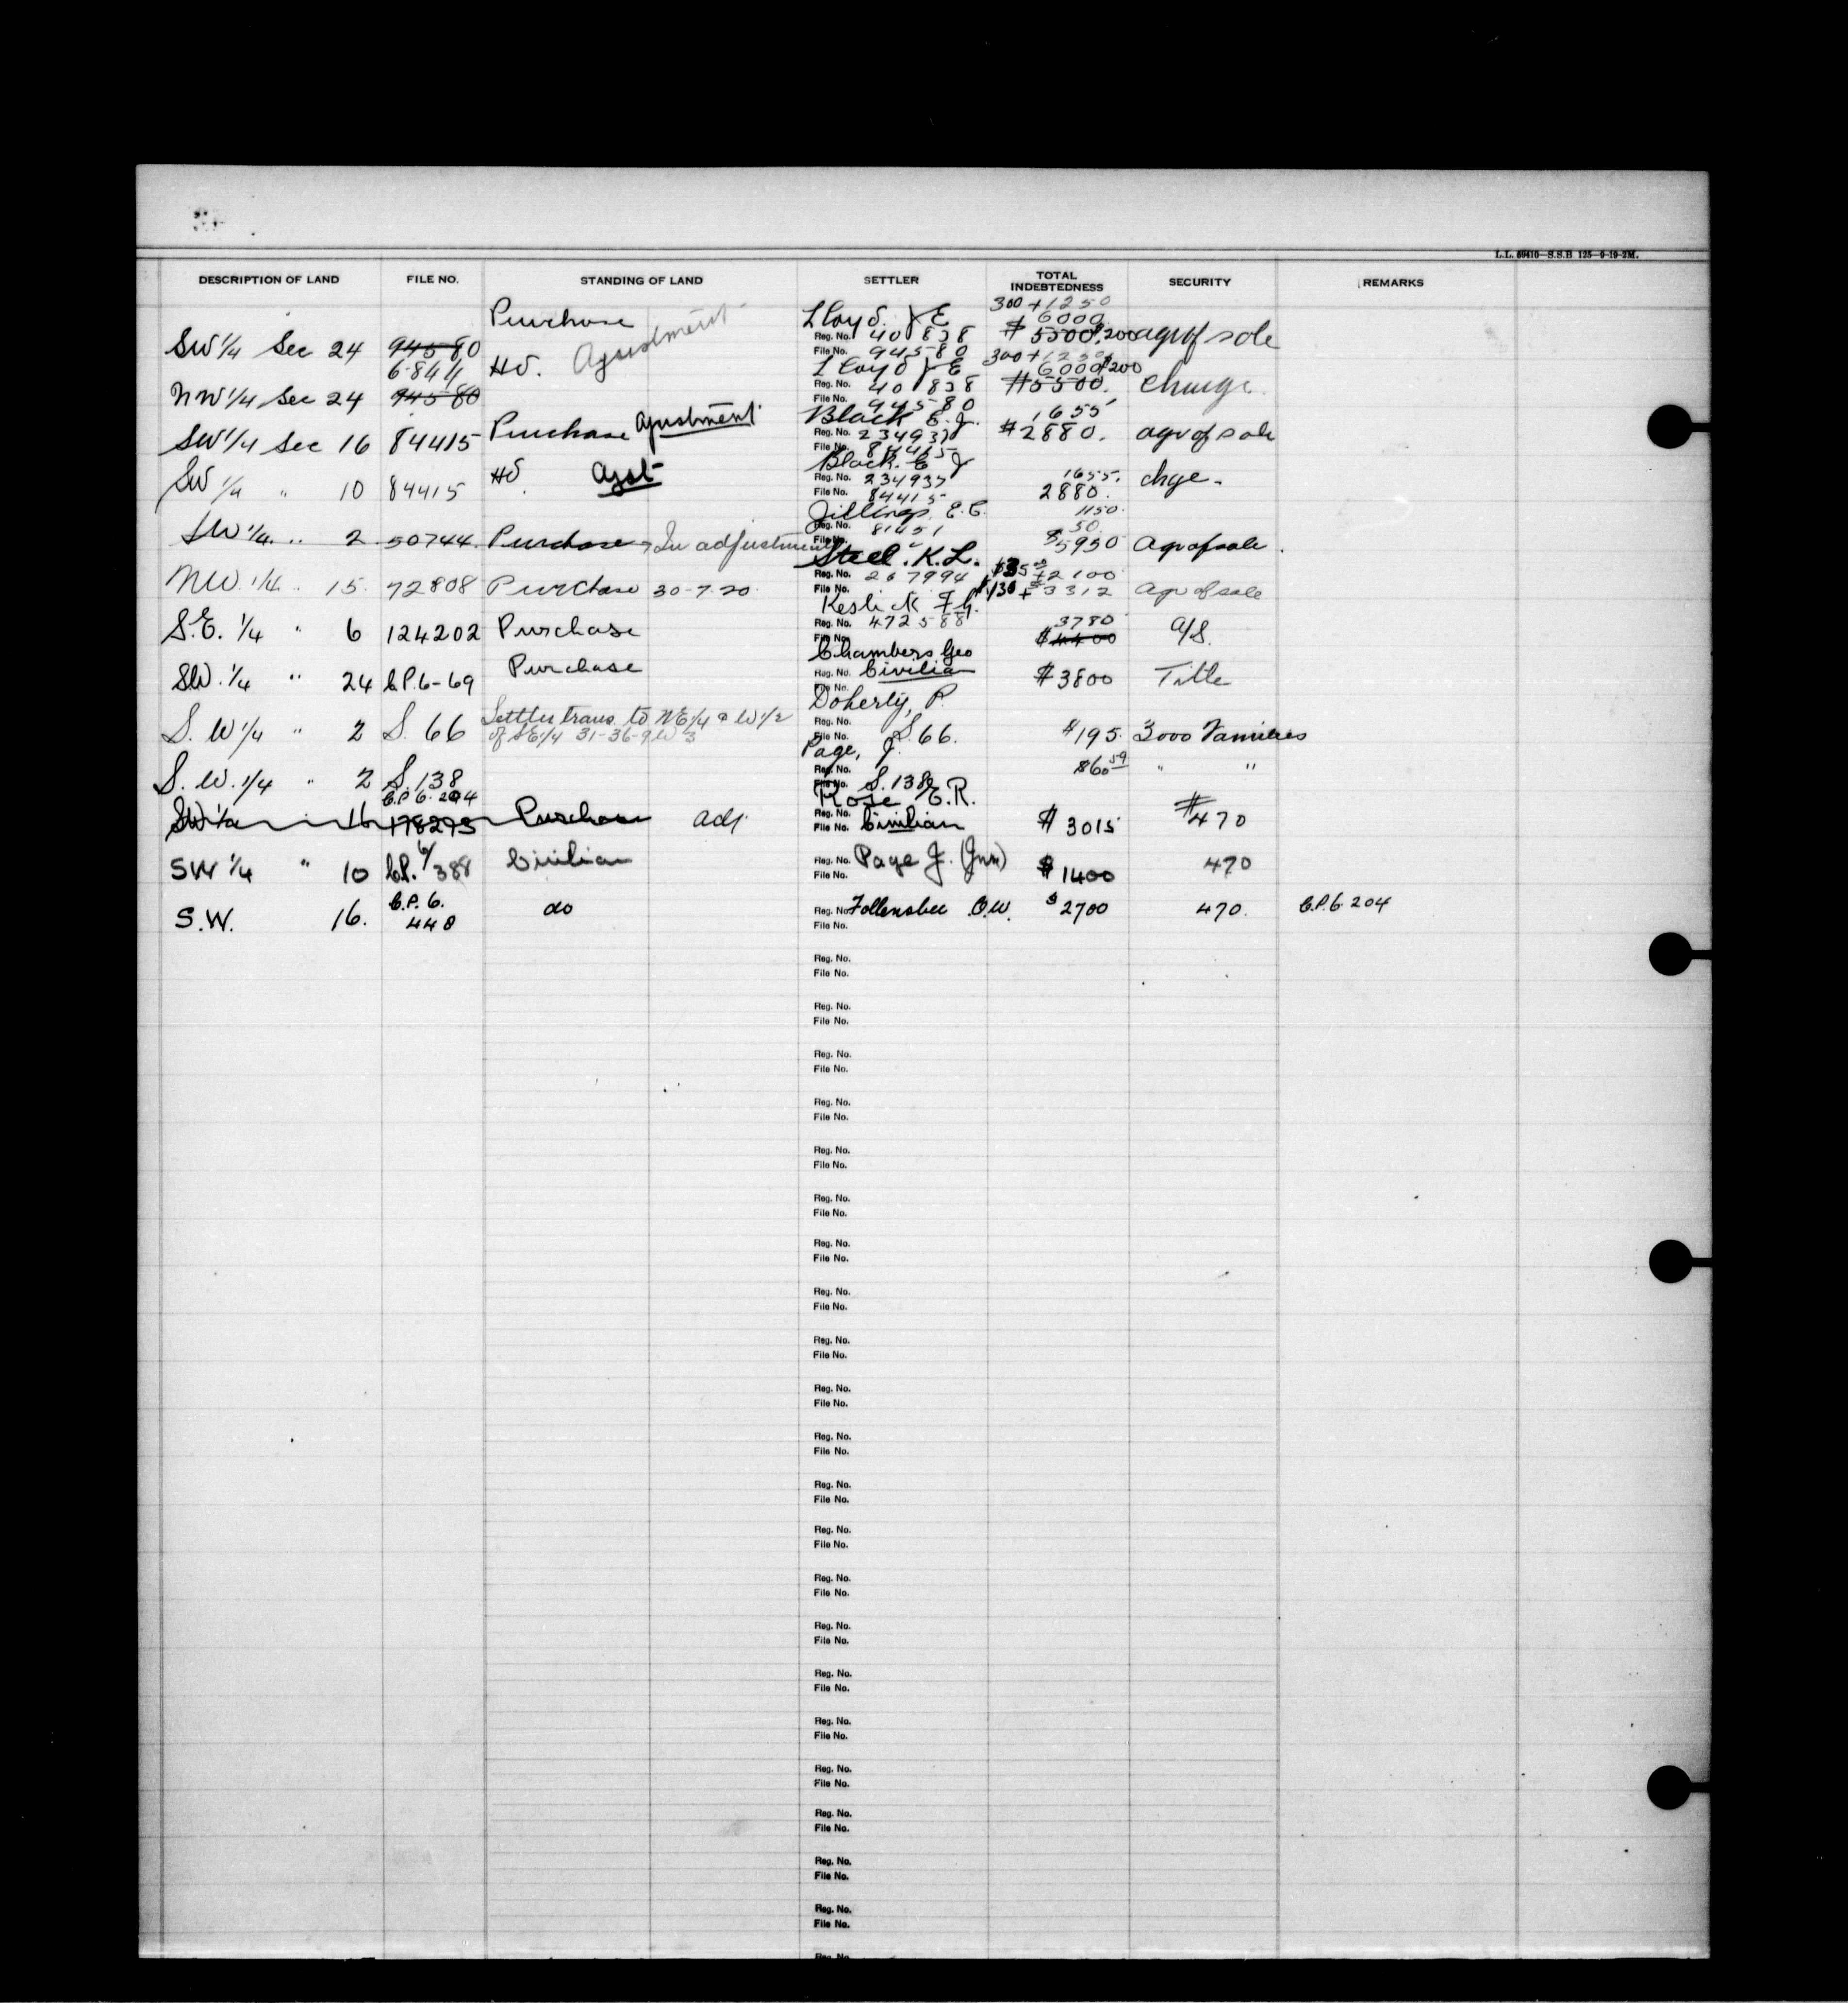 L.L. 69410—S.S.B 125—9-19-2M.
DESCRIPTION OF LAND FILE NO. STANDING OF LAND SETTLER TOTAL INDEBTEDNESS SECURITY REMARKS
300 + 1250
Purchase Adjustment Lloyd J E $6000
SW 1/4 Sec 24 94580 Reg. No. 401838 $5500 $200 agr of sale
6844 File No. 94580 300 + 1250
HD. Lloyd J E 6000 $200
NW 1/4 Sec 24 94580 Reg. No. 401838 $5500. charge
File No. 94580
Purchase Ajustment Black E. J. 1655
SW 1/4 Sec 16 84415 Reg. No. 234937 $2880. agr of sale
File No. 84415
HD. Ajst Black. E J
SW 1/4 " 10 84415 Reg. No. 234937 1655. chge.
File No. 84415 2880.
Jillings. E. C. 1150.
Reg. No. 81451 50.
SW 1/4. " 2 50744. Purchase In adjustment File No. " $5950 Agr of sale.
Steel. K. L.
Reg. No. 267994 +2100
NW. 1/4. " 15. 72808 Purchase 30-7-20. File No. $130 + $3312 Agr of sale
Keslick F. G.
S.E. 1/4 " 6 124202 Purchase Reg. No. 472588 3780 A/S.
File No. $4400
Chambers Geo
SW. 1/4 " 24 C.P.6-69 Purchase Reg. No. Civilian $3800 Title
File No.
Doherty, P.
Settler trans. to NE 1/4 & W 1/2 Reg. No.
S. W 1/4 " 2 S. 66 of SE 1/4 31-36-9 W 3 File No. S. 66. $195. 3000 Families
Page, J.
Reg. No. 860 59 " "
S. W. 1/4 " 2 S. 138 File No. S. 138
C.P. 6. 204 Rose E. R.
SW 1/4 " 16 178295 Purchase adj. Reg. No. $470
File No. Civilian $3015
SW 1/4 " 10 C.P. 6/388 Civilian Reg. No. Page J. (Jnr) $1400 470
File No.
S.W. 16. C.P. 6. 440 do Reg. No. Follensbee O.W. $2700 470. C.P.6 204
File No.
Reg. No.
File No.
Reg. No.
File No.
Reg. No.
File No.
Reg. No.
File No.
Reg. No.
File No.
Reg. No.
File No.
Reg. No.
File No.
Reg. No.
File No.
Reg. No.
File No.
Reg. No.
File No.
Reg. No.
File No.
Reg. No.
File No.
Reg. No.
File No.
Reg. No.
File No.
Reg. No.
File No.
Reg. No.
File No.
Reg. No.
File No.
Reg. No.
File No.
Reg. No.
File No.
Reg. No.
File No.
Reg. No.
File No.
Reg. No.